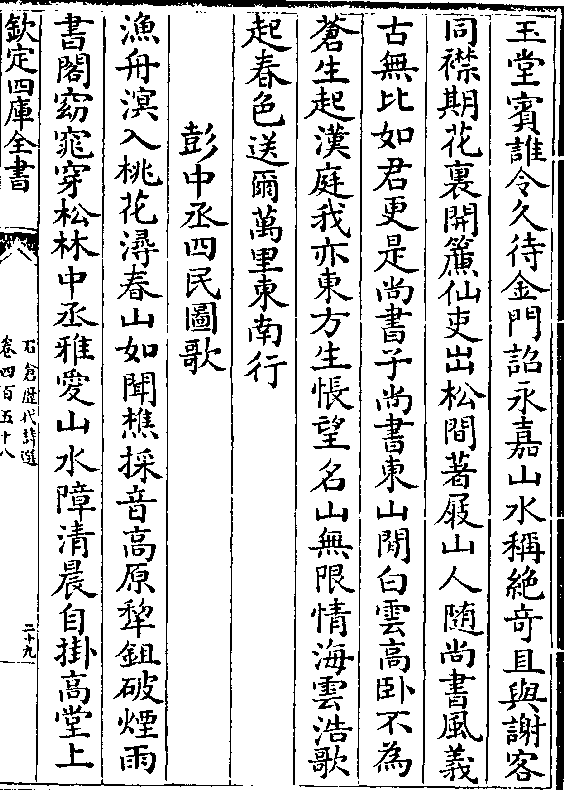 玉堂賓誰令久待金門詔永嘉山水稱絶奇且與謝客
同襟期花裏開簾仙吏出松間著屐山人随尚書風義
古無比如君更是尚書子尚書東山閒白雲高卧不為
蒼生起漢庭我亦東方生悵望名山無限情海雲浩歌
起春色送爾萬里東南行
彭中丞四民圖歌
漁舟溟入桃花潯春山如聞樵採音高原犂鉏破煙雨
書閣窈窕穿松林中丞雅愛山水障清晨自掛高堂上
欽定四庫全書
石倉歷代詩選
卷四百五十八
二十九